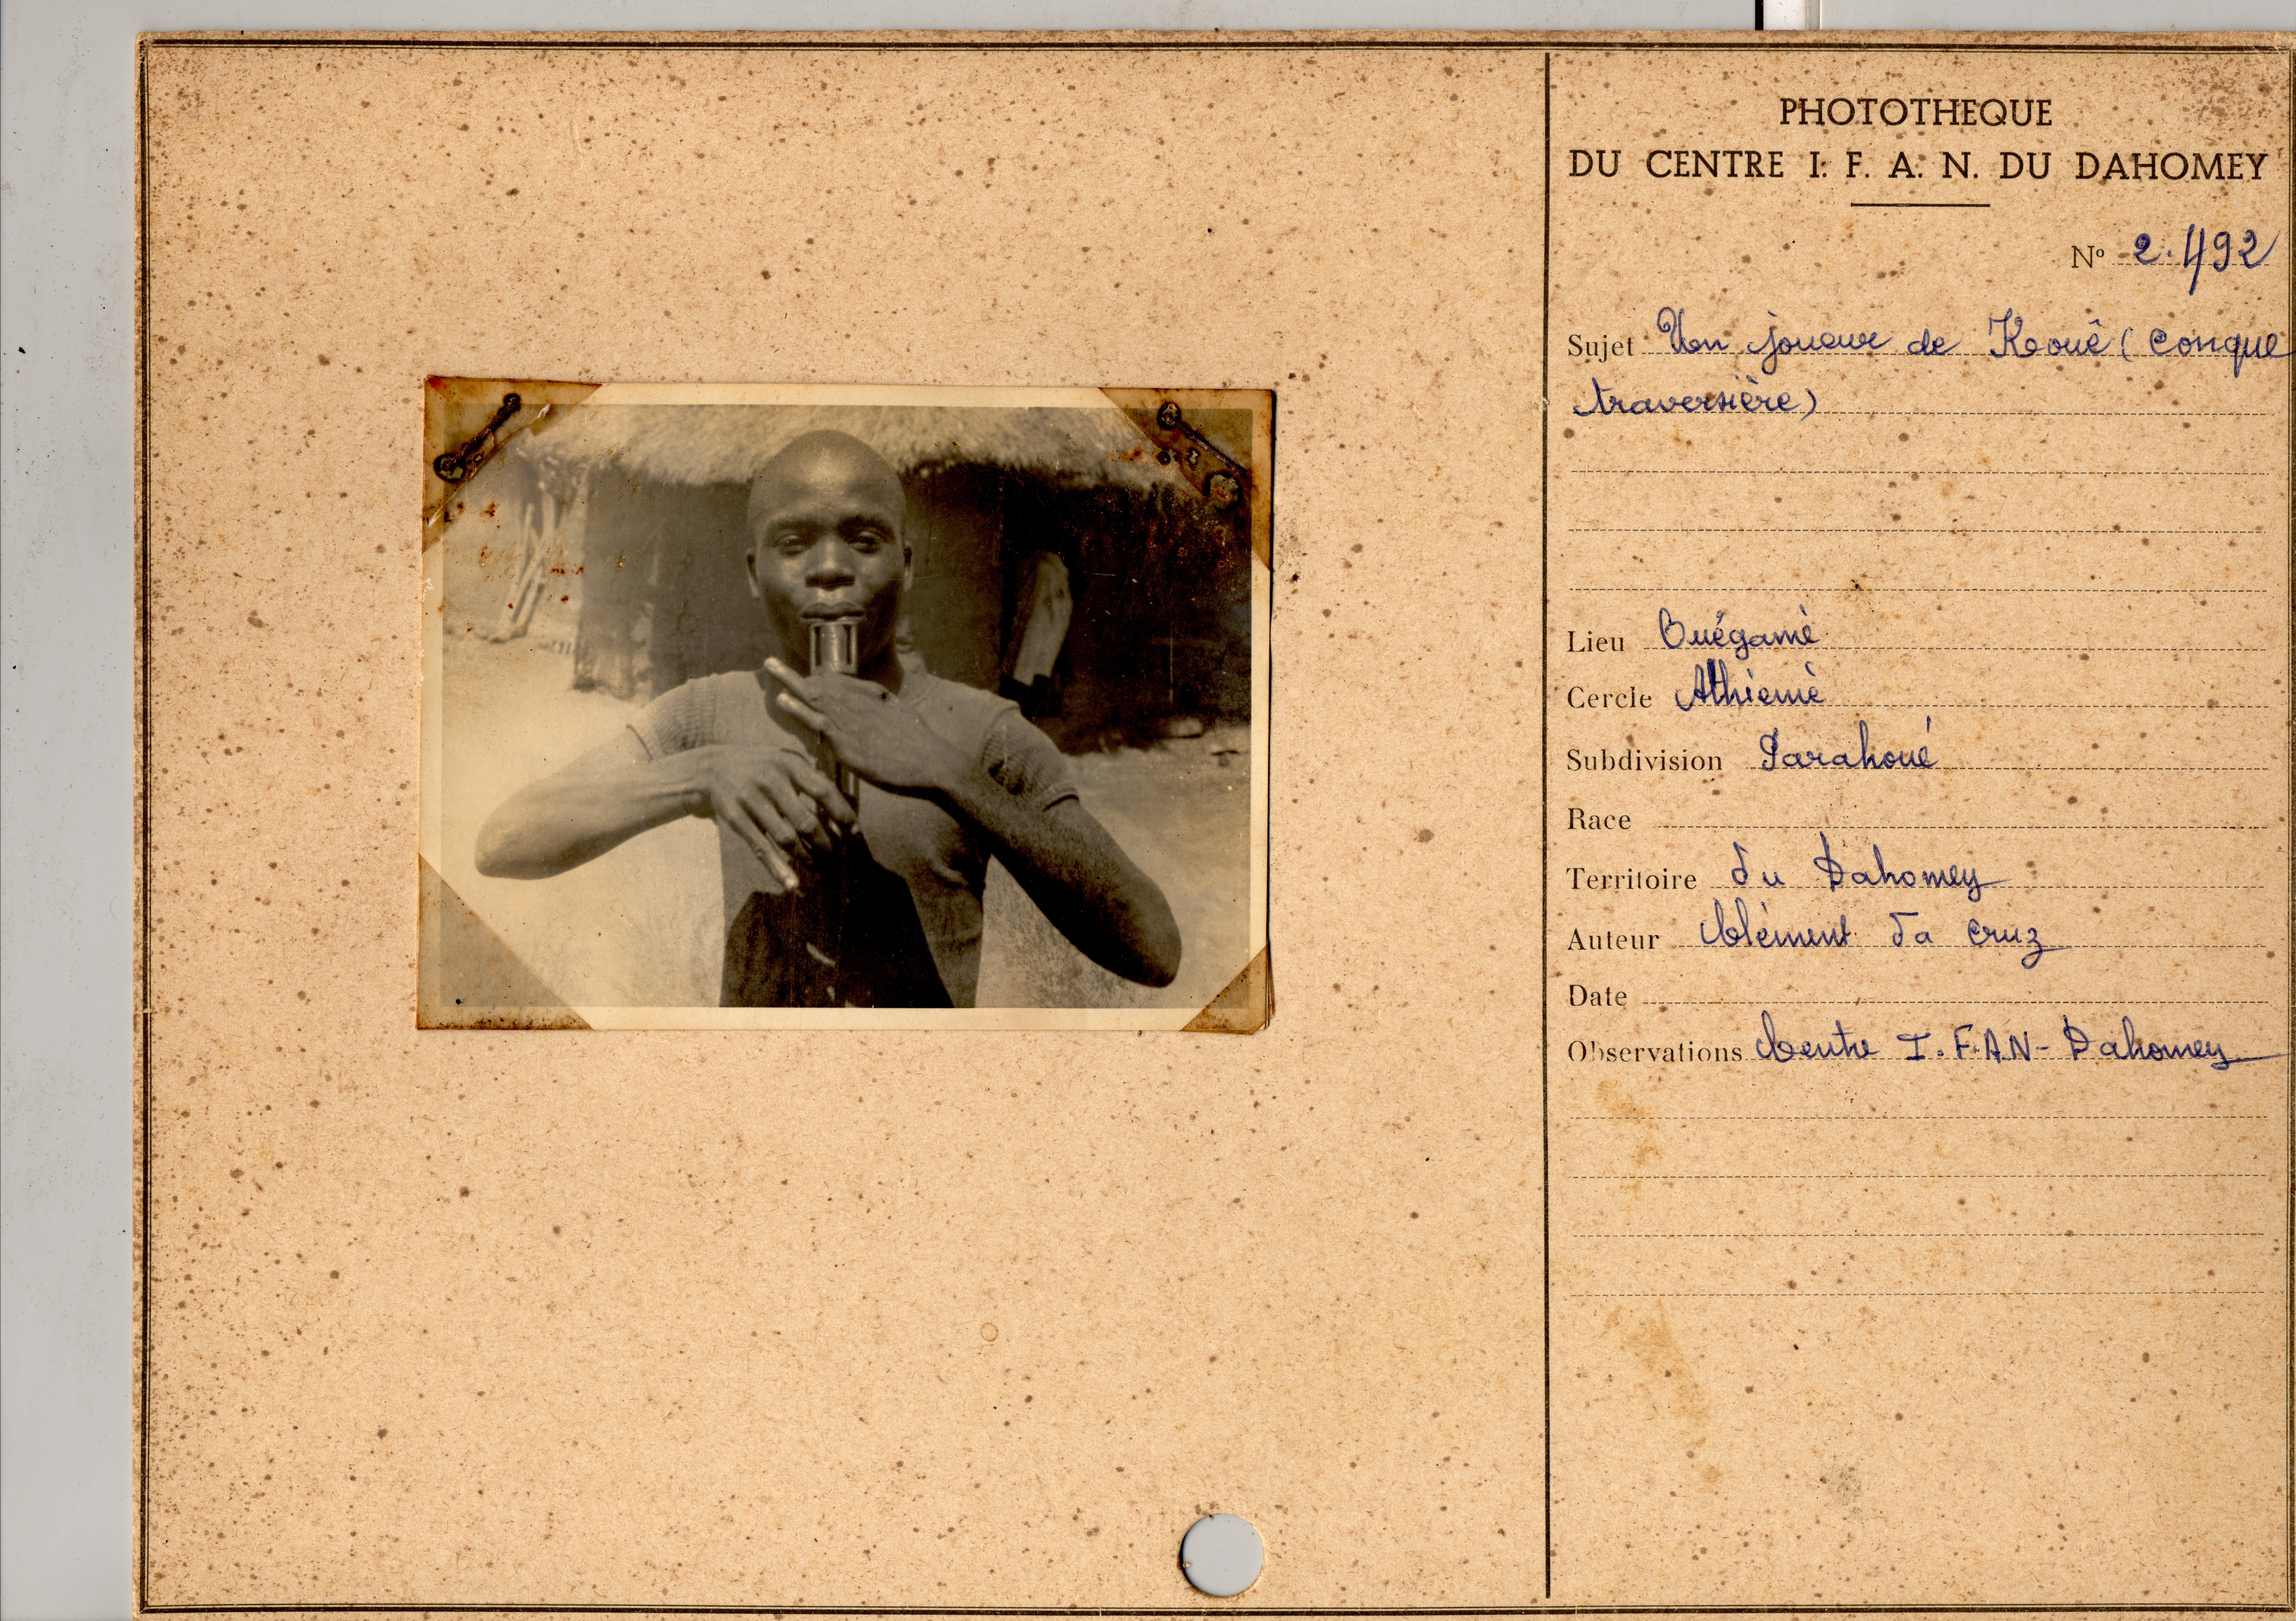 PHOTOTHEQUE
DU CENTRE I. F. A. N. DU DAHOMEY
Nº 2.492
Sujet Un joueur de Kouê (conque
traversière)
Lieu Ouégamè
Cercle Athiémè
Subdivision Parahoué
Race
Territoire du Dahomey
Auteur Clément da Cruz
Date
Observations Centre I.F.A.N - Dahomey